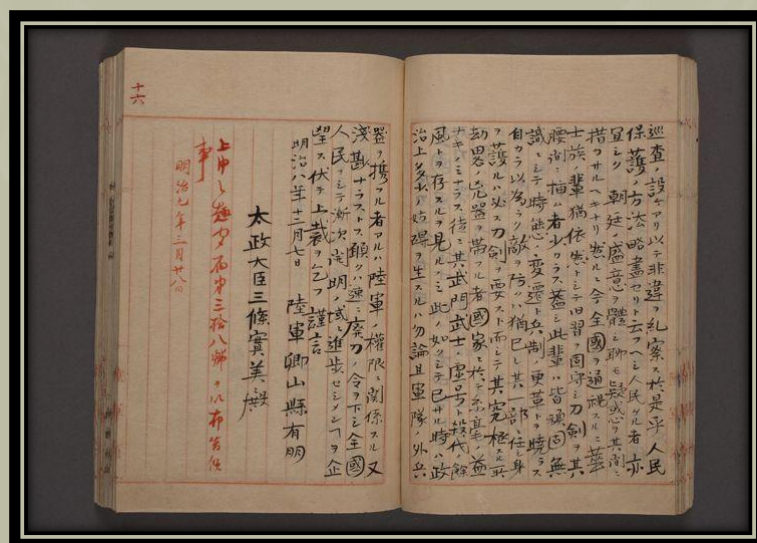 巡査ノ設ケアリ以テ非違ヲ糺察ス於是乎人民
保護ノ方法略盡セリト云フヘシ人民タル者亦
宜シク朝廷ノ盛意ヲ體シ聊モ疑惑ヲ其間ニ
措クヘキナリ然ルニ今全國ヲ通視スルニ華
士族輩猶依然トシテ旧習ヲ固守シ刀劍ヲ其
腰間ニ横ル者少カラス蓋シ此輩ハ皆頑固無
識ニシテ時態ノ変遷ト兵制ノ更革トヲ暁ラス
自カラ以為ラク敵ヲ防ハ猶已レ其一部ニ任シ身
ヲ護ルハ必ス刀劍ヲ要スト而シテ其究極
劫畧ノ兇器ヲ帯フル者國家ニ於テ亦毫モ益
ナキノミナラス徒ニ其武門武士ノ虚号ト殺伐ノ餘
風トヲ存スルヲ見ルノミ此ノ如クニシテ已サル時ハ政
治上多少ノ妨碍ヲ生スルハ勿論且軍隊ノ外兵
器ヲ携フル者アルハ陸軍ノ権限ニ関係スル又
淺尠ナラストス願クハ速ニ廃刀ノ令ヲ下シ全國
人民ヲシテ漸次開明ノ域ニ進歩セシメンヿヲ企
望ス伏テ上裁ヲ乞フ謹言
明治八年十二月七日 陸軍卿山縣有朋
太政大臣三條實美殿
上申ノ趣第三拾八号ヲ以布告候
事
明治九年三月廿八日
十六